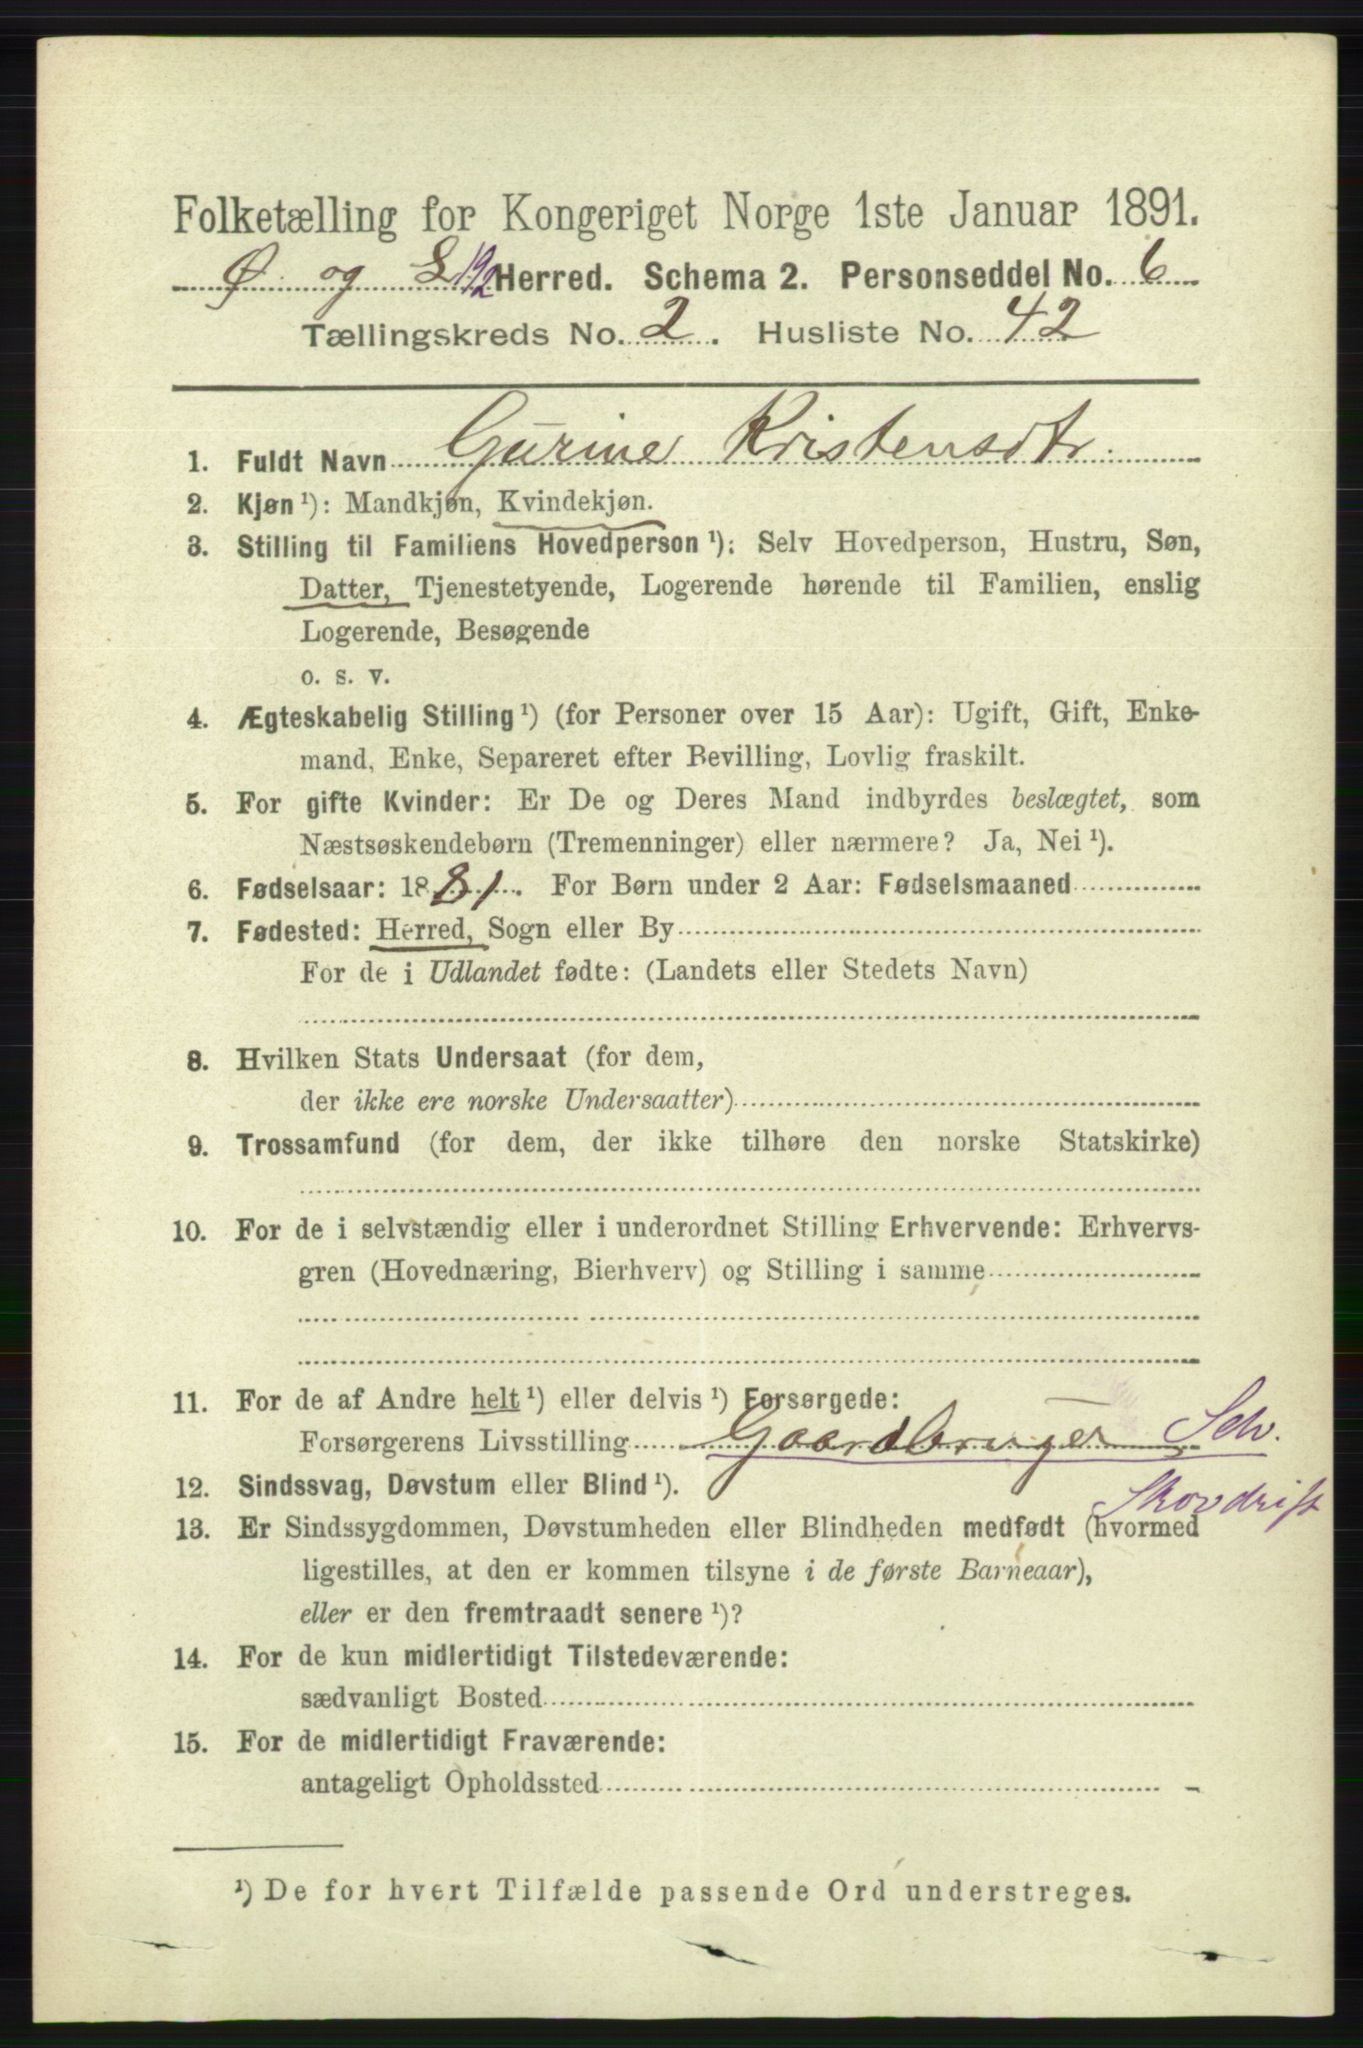 Folketælling for Kongeriget Norge 1ste Januar 1891.
Ø. og L. Herred. Schema 2. Personseddel No. 6
Tællingskreds No. 2. Husliste No. 42
1. Fuldt Navn Gurine Kristensdtr.
2. Kjøn ¹): Mandkjøn, Kvindekjøn.
3. Stilling til Familiens Hovedperson ¹): Selv Hovedperson, Hustru, Søn,
Datter, Tjenestetyende, Logerende hørende til Familien, enslig
Logerende, Besøgende
o. s. v.
4. Ægteskabelig Stilling ¹) (for Personer over 15 Aar): Ugift, Gift, Enke-
mand, Enke, Separeret efter Bevilling, Lovlig fraskilt.
5. For gifte Kvinder: Er De og Deres Mand indbyrdes beslægtet, som
Næstsøskendebørn (Tremenninger) eller nærmere? Ja, Nei ¹).
6. Fødselsaar: 1881. For Børn under 2 Aar: Fødselsmaaned
7. Fødested: Herred, Sogn eller By
For de i Udlandet fødte: (Landets eller Stedets Navn)
8. Hvilken Stats Undersaat (for dem,
der ikke ere norske Undersaatter)
9. Trossamfund (for dem, der ikke tilhøre den norske Statskirke)
10. For de i selvstændig eller i underordnet Stilling Erhvervende: Erhvervs-
gren (Hovednæring, Bierhverv) og Stilling i samme
11. For de af Andre helt ¹) eller delvis ¹) Forsørgede:
Forsørgerens Livsstilling Gaardbruger Selv.
Skovdrift
12. Sindssvag, Døvstum eller Blind ¹).
13. Er Sindssygdommen, Døvstumheden eller Blindheden medfødt (hvormed
ligestilles, at den er kommen tilsyne i de første Barneaar),
eller er den fremtraadt senere ¹)?
14. For de kun midlertidigt Tilstedeværende:
sædvanligt Bosted
15. For de midlertidigt Fraværende:
antageligt Opholdssted
¹) De for hvert Tilfælde passende Ord understreges.